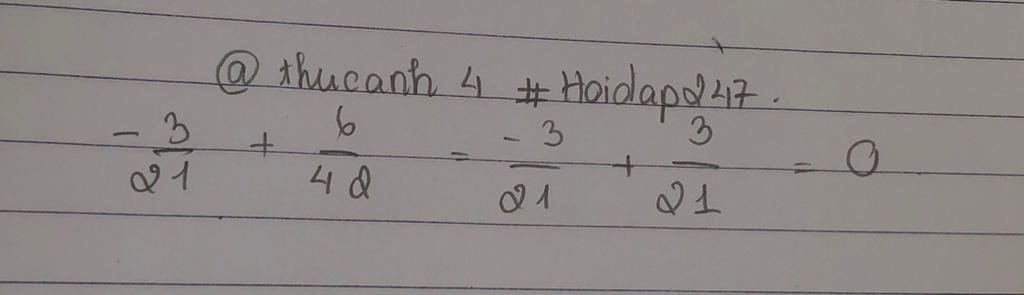 @ thucanh 4 # Hoidap247.
-3/21 + 6/42 = -3/21 + 3/21 = 0